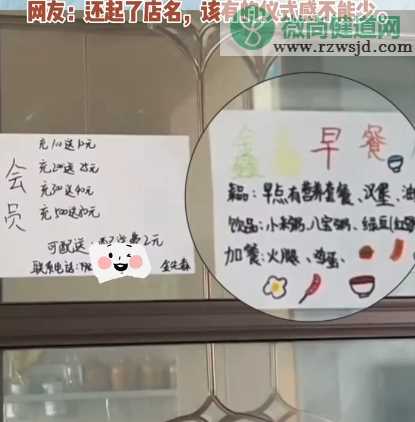 网友：还起了店名，该有的仪式感不能少。
微尚健道网
www.rzwsjd.com
会员
充100送10元
充200送25元
充300送40元
充500送80元
可配送：配送费2元
联系电话：
金先森
早餐
早点有营养套餐、汉堡、油
饮品：小米粥、八宝粥、绿豆(红
加餐：火腿、鸡蛋、